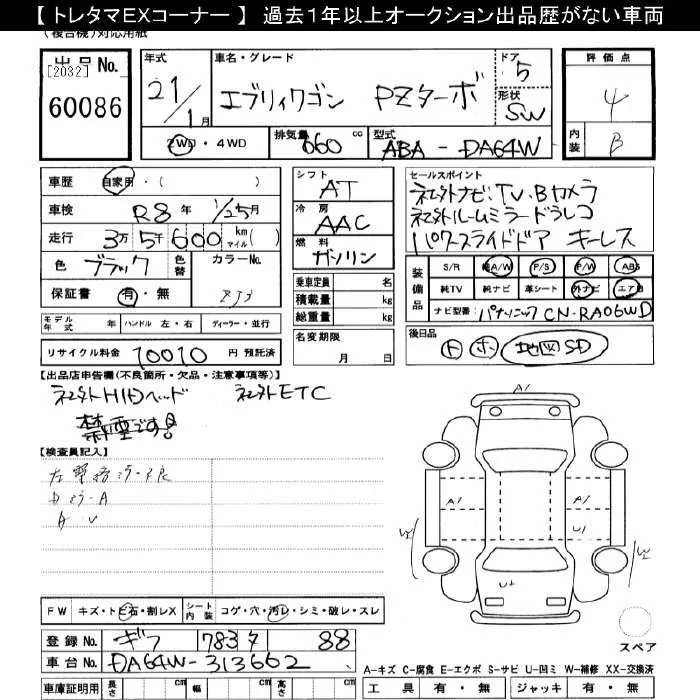 【 トレタマEXコーナー 】 過去1年以上オークション出品歴がない車両
(複合機)対応用紙
出品No.
[2032]
60086
年式
21/1月
車名・グレード
エブリィワゴン PZターボ
ドア
5
形状
SW
評価点
4
内装
B
2WD・4WD
排気量
660 cc
型式
ABA - DA64W
車歴 自家用・( )
車検 R8年 1/25月
走行 3万5千600 km マイル( )
色 ブラック 色替 カラーNo. ZJ3
保証書 有・無
モデル年式 年 ハンドル 左・右 ディーラー・並行
リサイクル料金 10010 円 預託済
シフト
AT
冷房
AAC
燃料
ガソリン
乗車定員 名
積載量 kg
総重量 kg
名変期限
月 日
セールスポイント
社外ナビ TV.Bカメラ
社外ルームミラードラレコ
パワースライドドア キーレス
装備品
S/R 純A/W P/S P/W ABS
純TV 純ナビ 革シート 外ナビ エアB
ナビ型番: パナソニック CN-RA06WD
後日品
ト ホ 地図SD
【出品店申告欄(不良箇所・欠品・注意事項等)】
社外HIDヘッド 社外ETC
禁煙です!
【検査員記入】
A1
A1
A1
U1
W2
W2
U2
スペア
FW キズ・トビ石・割レX シート内装 コゲ・穴・汚レ・シミ・破レ・スレ
登録No. ギフ 783 タ 88
車台No. DA64W-313662
車庫証明用 長さ cm 幅 cm 高さ cm
A-キズ C-腐食 E-エクボ S-サビ U-凹ミ W-補修 XX-交換済
工具 有・無 ジャッキ 有・無